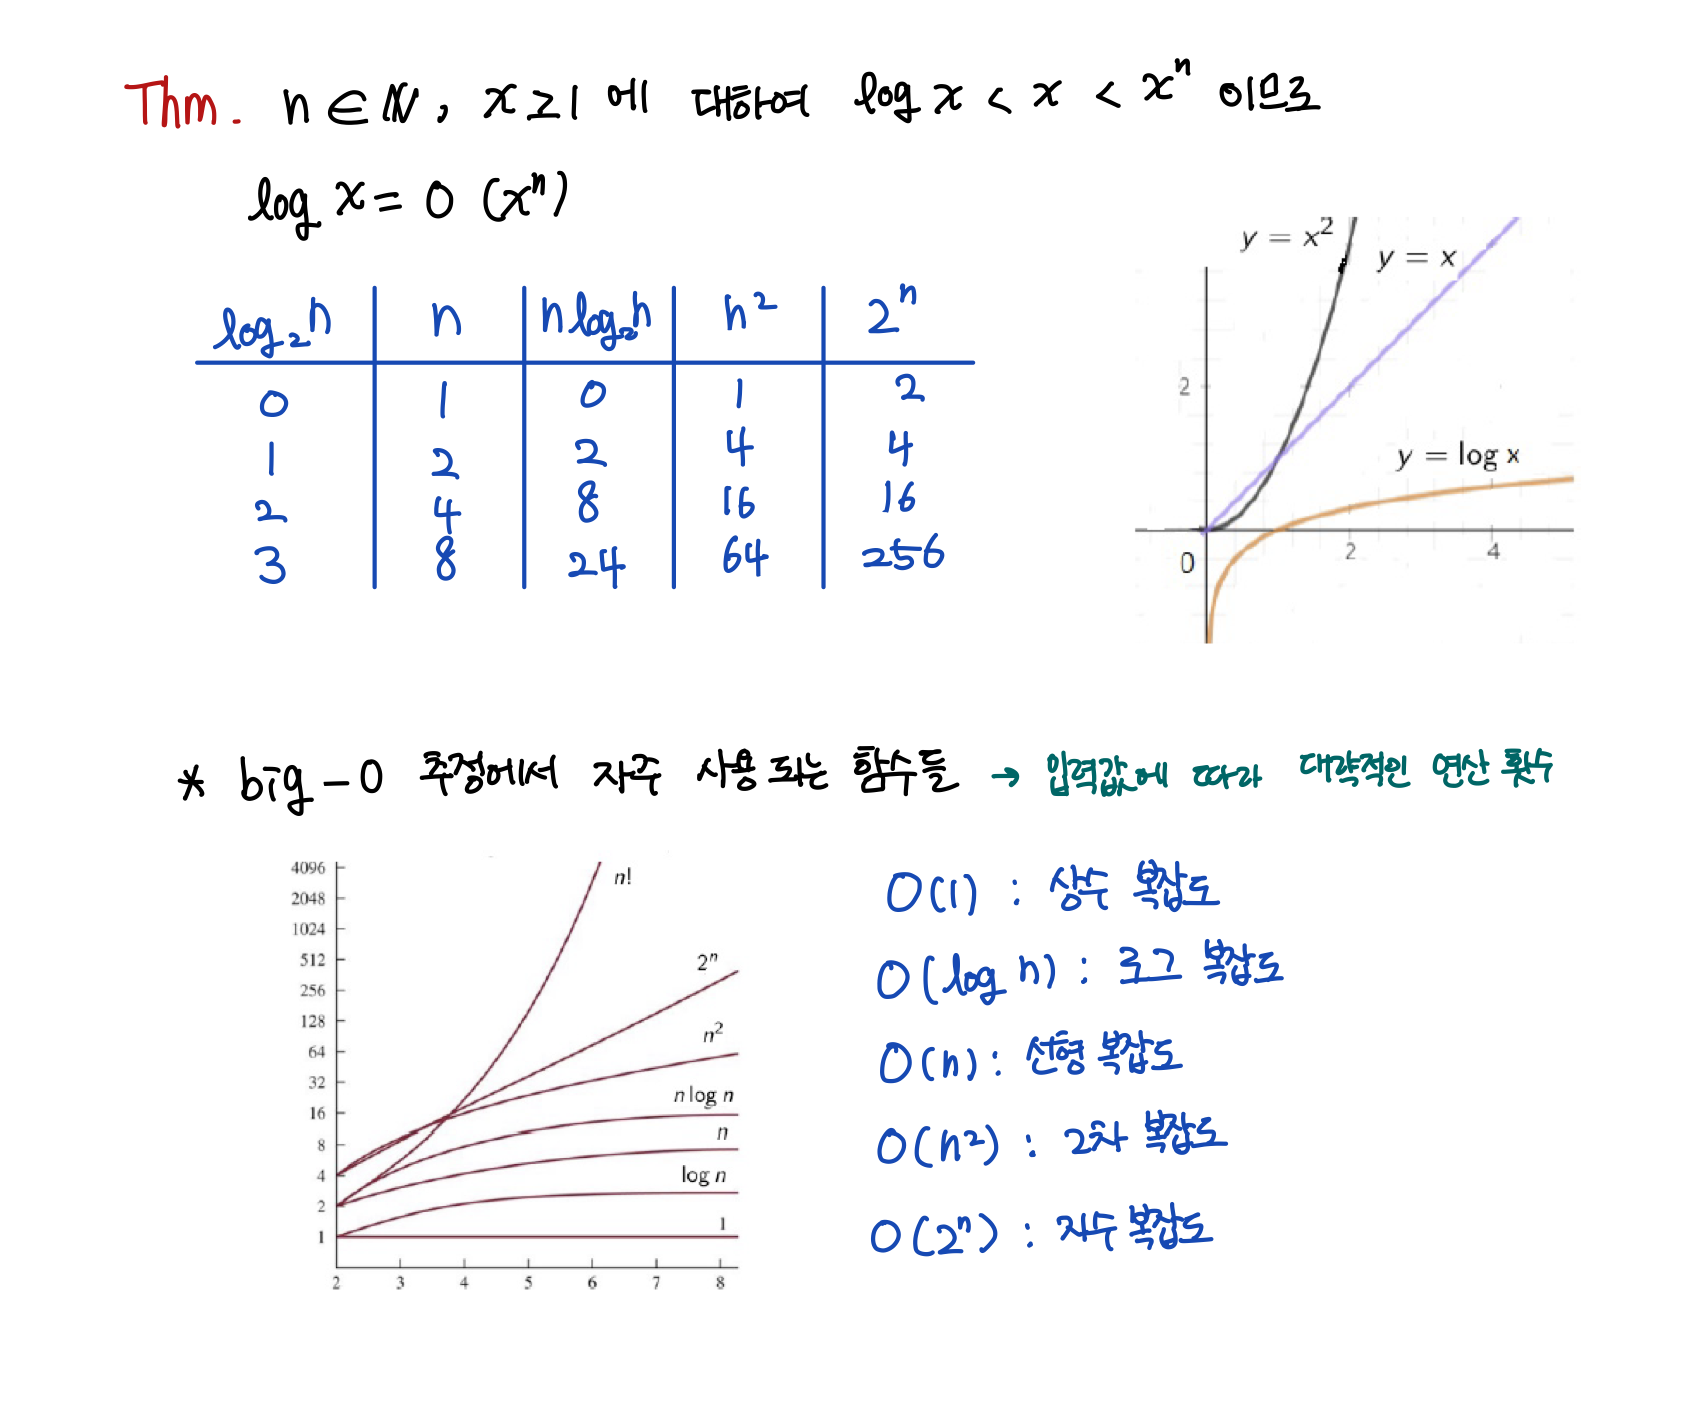 Thm. n ∈ ℕ, x ≥ 1 에 대하여 log x < x < xⁿ 이므로
log x = O (xⁿ)
log₂n n nlog₂n n² 2ⁿ
0 1 0 1 2
1 2 2 4 4
2 4 8 16 16
3 8 24 64 256
y = x²
y = x
2
y = log x
0 2 4
* big-O 추정에서 자주 사용되는 함수들 → 입력값에 따라 대략적인 연산 횟수
4096
2048
1024
512
256
128
64
32
16
8
4
2
1
n!
2ⁿ
n²
n log n
n
log n
1
2 3 4 5 6 7 8
O(1) : 상수 복잡도
O(log n) : 로그 복잡도
O(n) : 선형 복잡도
O(n²) : 2차 복잡도
O(2ⁿ) : 지수 복잡도